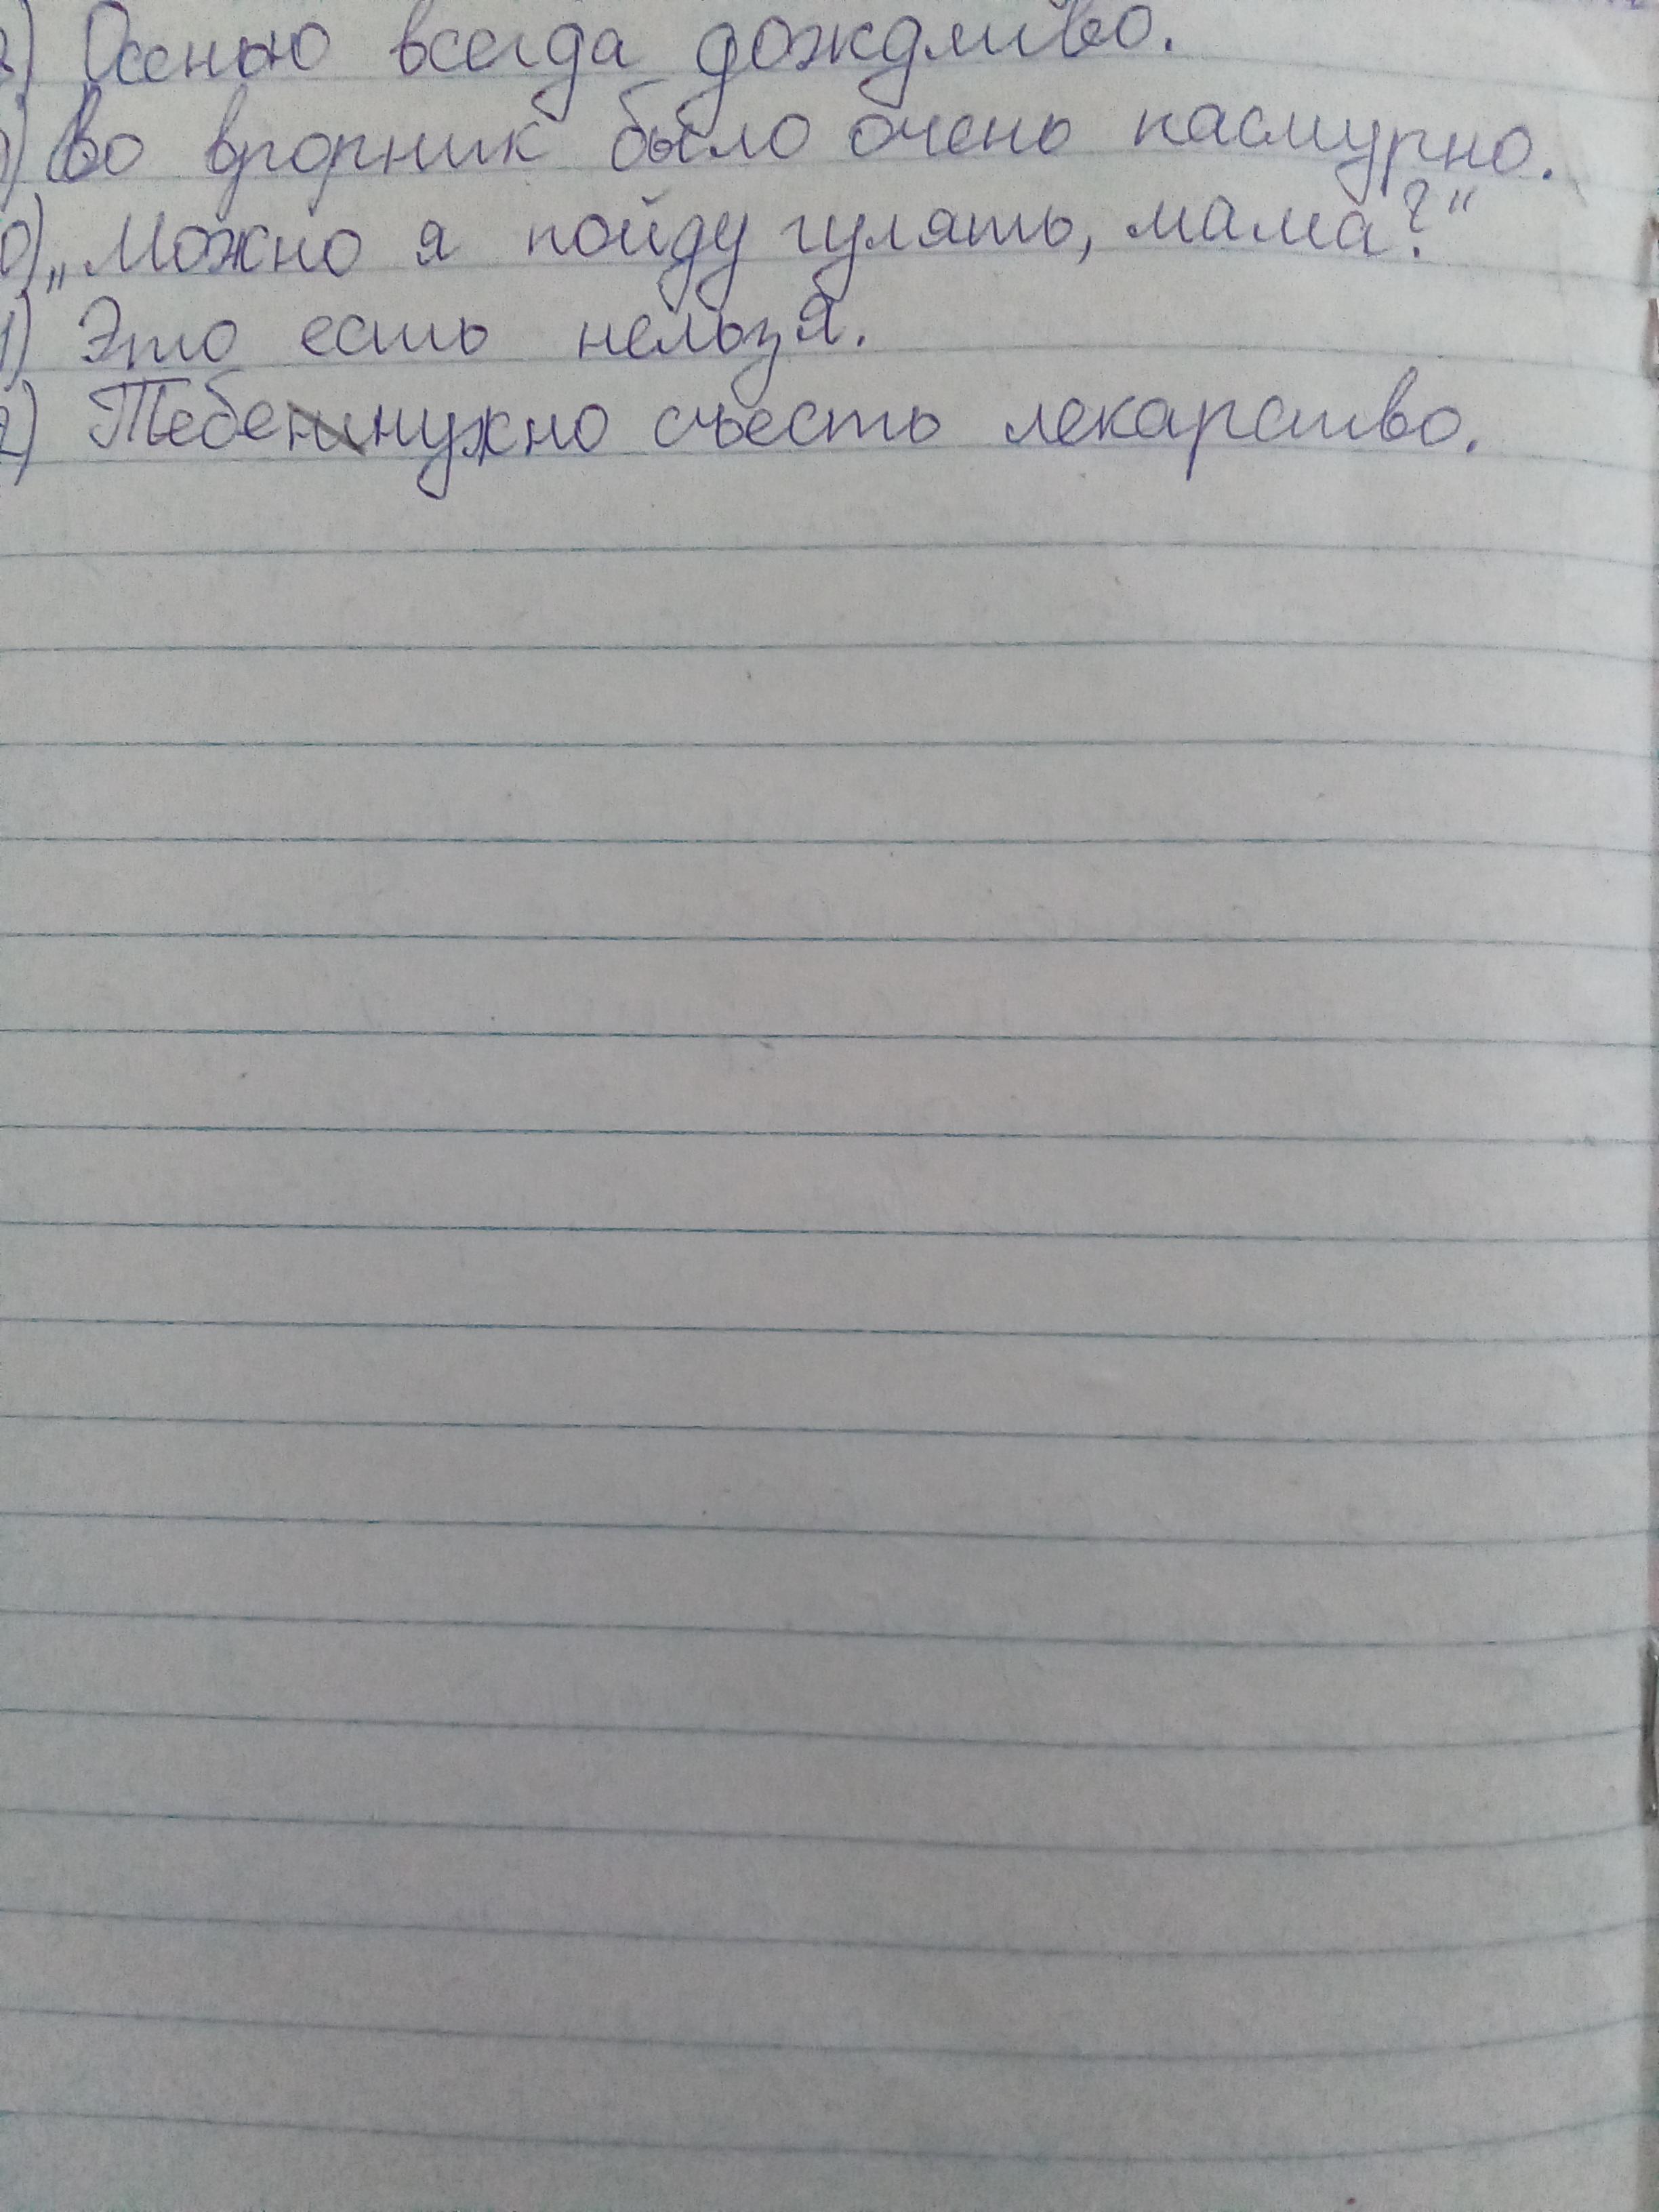 ) Осенью всегда дождливо.
) Во вторник было очень пасмурно.
0) „Можно я пойду гулять, мама?“
1) Это есть нельзя.
2) Тебе нужно съесть лекарство.